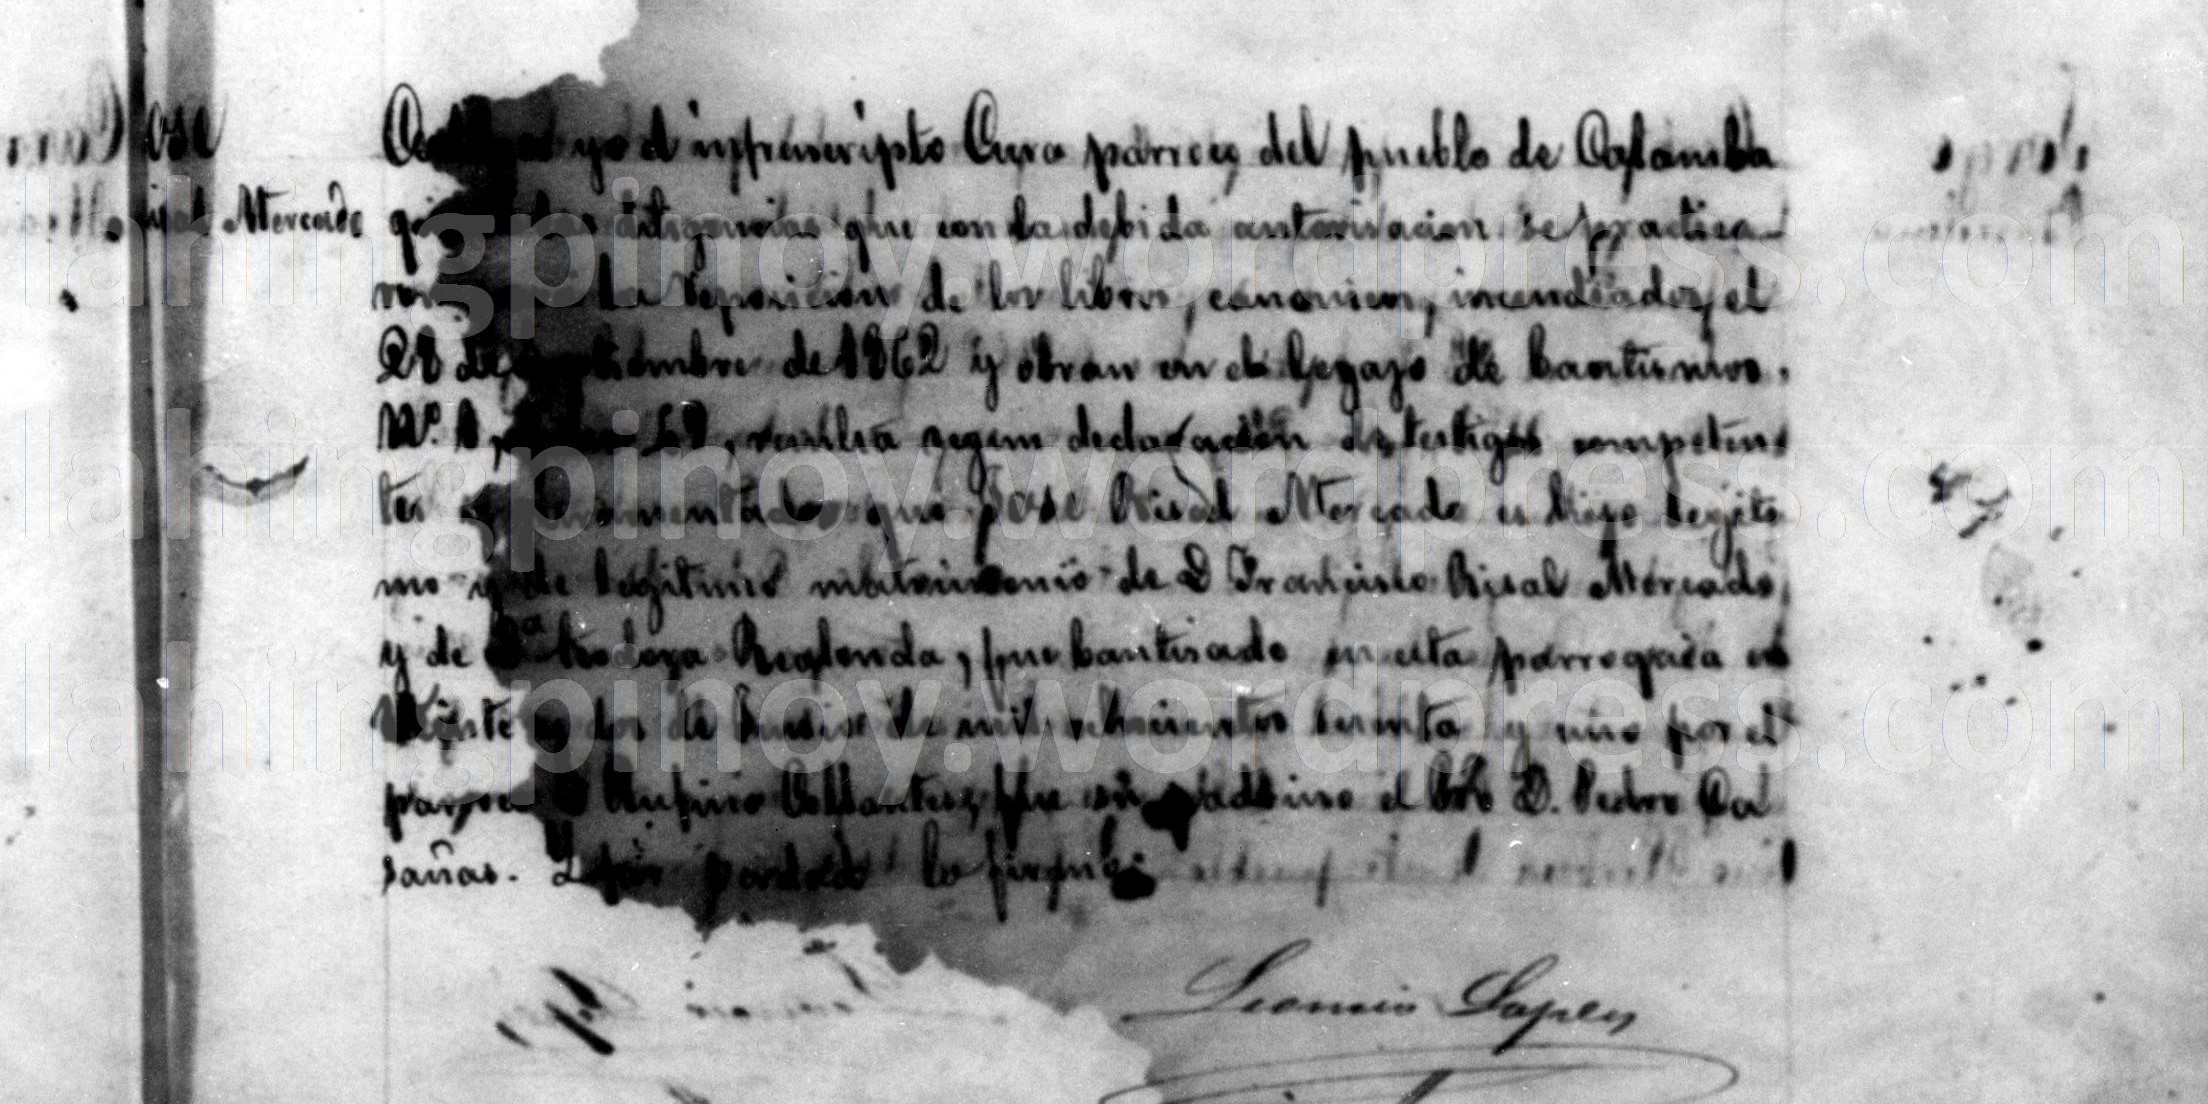 Jose
Rizal Mercado
yo el infrenscripto Cura parroco del pueblo de Calamba
que las diligencias que con la debida autorisacion se practica
ron la reposicion de los libros canonicos, incendiados el
28 de Setiembre de 1862 y obran en el legajo de bautismos,
Nº. 1, resulta segun declaracion de testigos competen
tes juramentados que Jose Risal Mercado es hijo legiti
mo y de legitimo matrimonio de D Francisco Risal Mercado
y de Dª Teodora Realonda, fue bautisado en esta parroquia en
Veinte y dos de Junio de mil ochocientos sesenta y uno por el
parroco D Rufino Collantes, fue su padrino el Pbro D. Pedro Ca
sañas. Y por verdad lo firmo.
Leoncio Lopez
lahingpinoy.wordpress.com
lahingpinoy.wordpress.com
lahingpinoy.wordpress.com